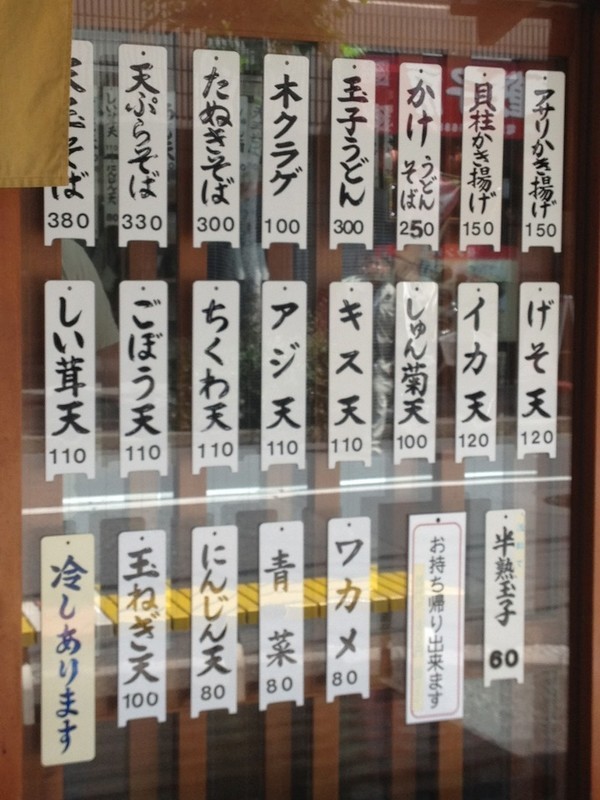 アサリかき揚げ
150
貝柱かき揚げ
150
かけ
うどん
そば
250
玉子うどん
300
木クラゲ
100
たぬきそば
300
天ぷらそば
330
そば
380
げそ天
120
イカ天
120
しゅん菊天
100
キス天
110
アジ天
110
ちくわ天
110
ごぼう天
110
しい茸天
110
半熟玉子
60
お持ち帰り出来ます
ワカメ
80
青菜
80
にんじん天
80
玉ねぎ天
100
冷しあります